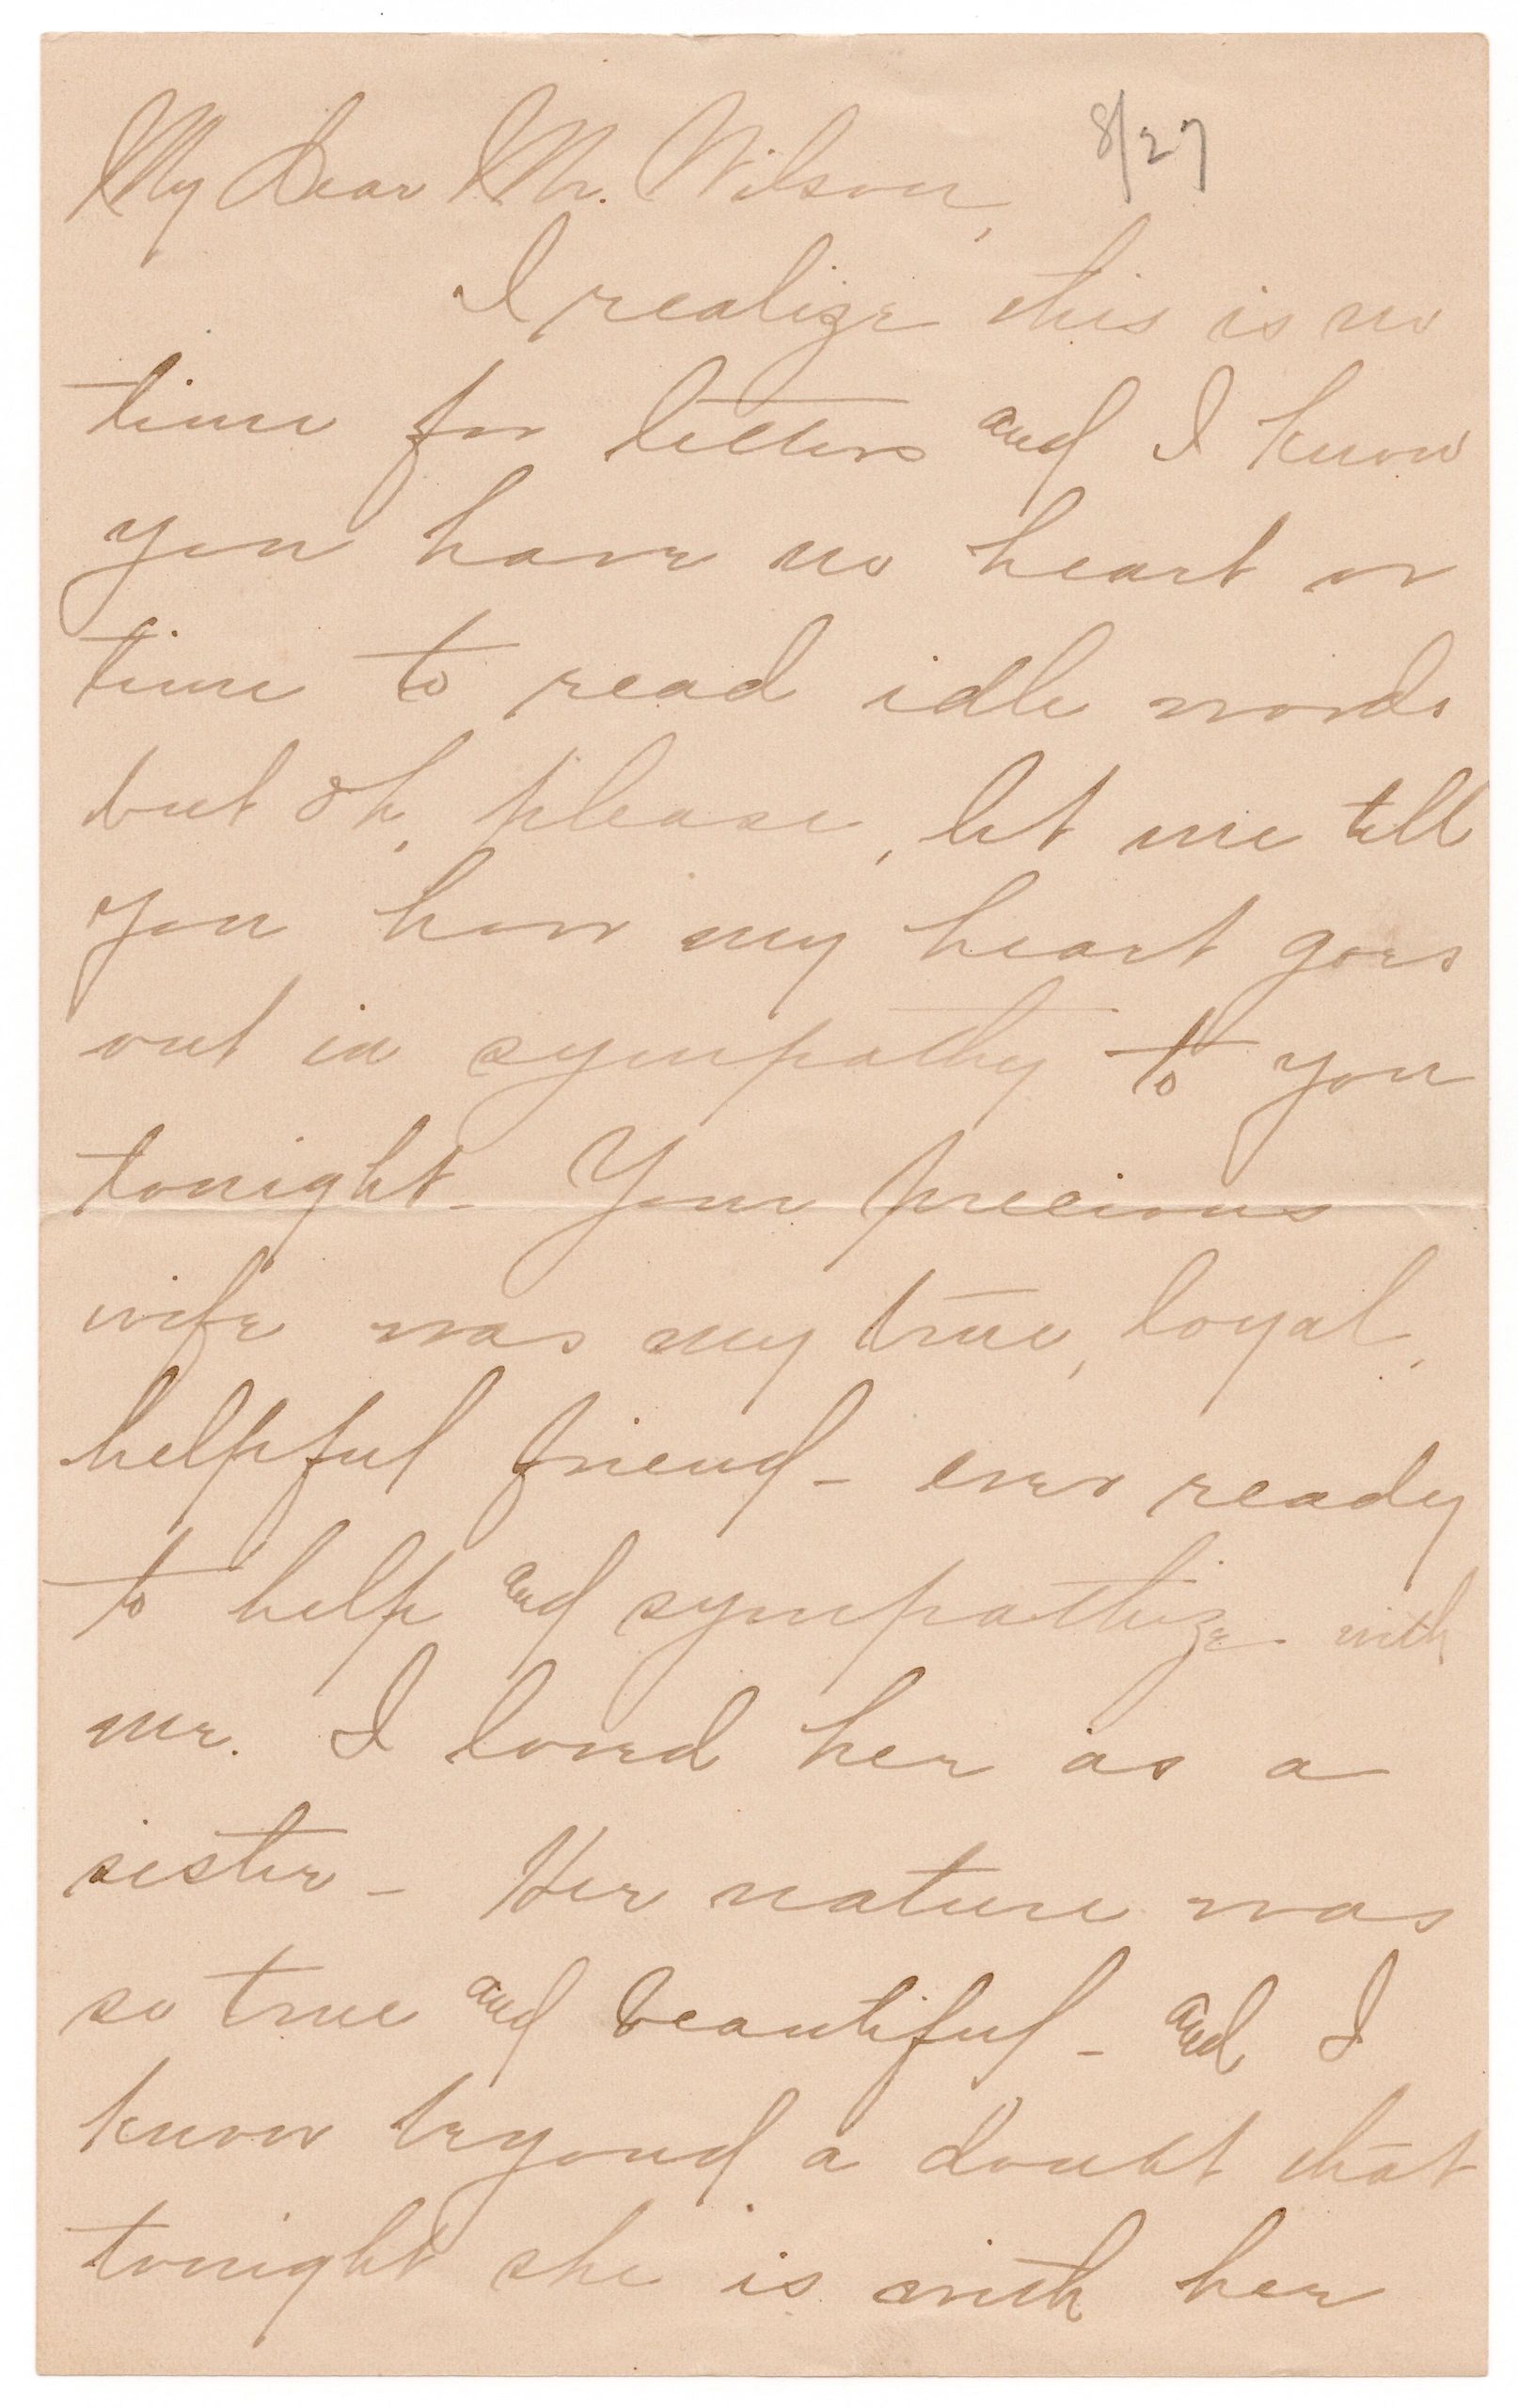 8/27
My Dear Mr. Wilson,
I realize this is no
time for letters and I know
you have no heart or
time to read idle words
but oh, please, let me tell
you how my heart goes
out in sympathy to you
tonight. Your precious
wife was my true, loyal,
helpful friend - ever ready
to help and sympathize with
me. I loved her as a
sister - Her nature was
so true and beautiful - and I
know beyond a doubt that
tonight she is with her